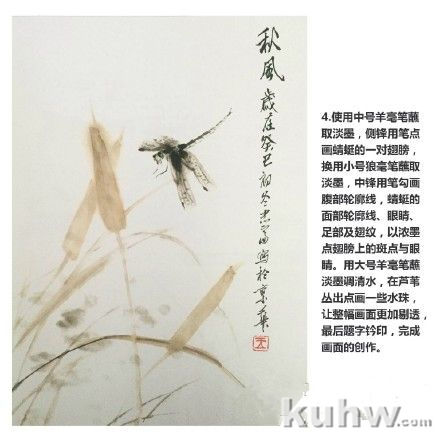 秋風
歲在癸巳初冬
寫於京華
4.使用中号羊毫笔蘸
取淡墨，侧锋用笔点
画蜻蜓的一对翅膀，
换用小号狼毫笔蘸取
淡墨，中锋用笔勾画
腹部轮廓线，蜻蜓的
面部轮廓线、眼睛、
足部及翅纹，以浓墨
点翅膀上的斑点与眼
睛。用大号羊毫笔蘸
淡墨调清水，在芦苇
丛出点画一些水珠，
让整幅画面更加剔透，
最后题字钤印，完成
画面的创作。
kuhw.com